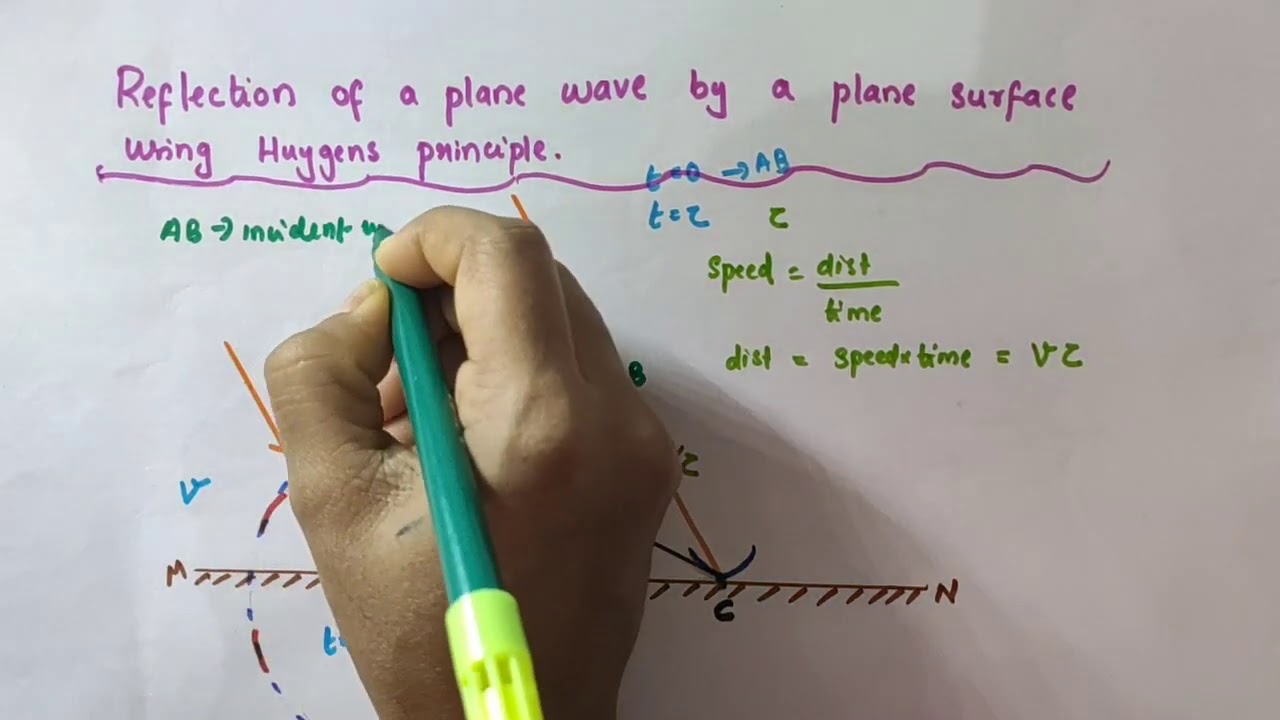 Reflection of a plane wave by a plane surface
using Huygens principle.
t=0 → AB
t=τ τ
AB → incident
speed = dist
time
dist = speed × time = Vτ
B
τ
V
M
N
C